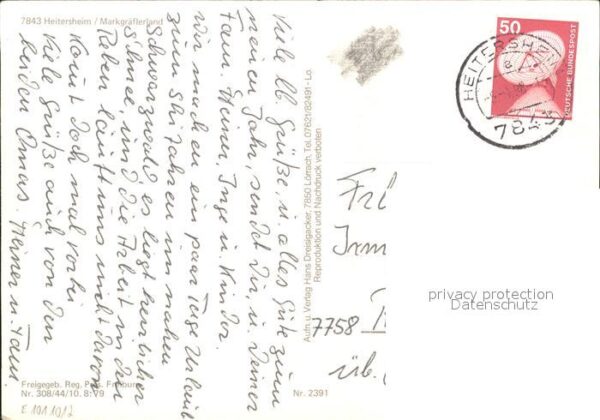 7843 Heitersheim / Markgräflerland
Viele lb. Grüße, u. alles Gute zum
neuen Jahr, sendet Dir, u. Deiner
Fam. Heiner, Inge u. Kinder.
Wir machen ein paar Tage Urlaub
zum Ski fahren im nahen
Schwarzwald es liegt herrlicher
Schnee, und die Arbeit in den
Reben läuft uns nicht davon
Komt doch mal vorbei
Viele Grüße auch von den
beiden Omas. Heiner u. Fam
Freigegeb. Reg. Präs. Freiburg
Nr. 308/44/10. 8. 79
E 101 1012
Aufn. u. Verlag Hans Dreisigacker, 7850 Lörrach, Tel. 07621/82491 - Lo
Reproduktion und Nachdruck verboten
Nr. 2391
50
DEUTSCHE BUNDESPOST
HEITERSHEIM
7843
Irm
7758
üb.
privacy protection
Datenschutz